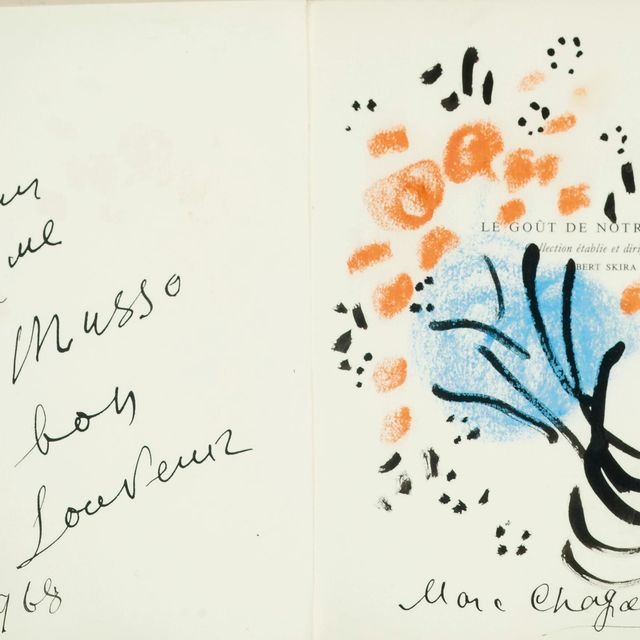 Musso
bon
Souvenir
968
LE GOÛT DE NOTR
llection établie et diri
BERT SKIRA
Marc Chaga